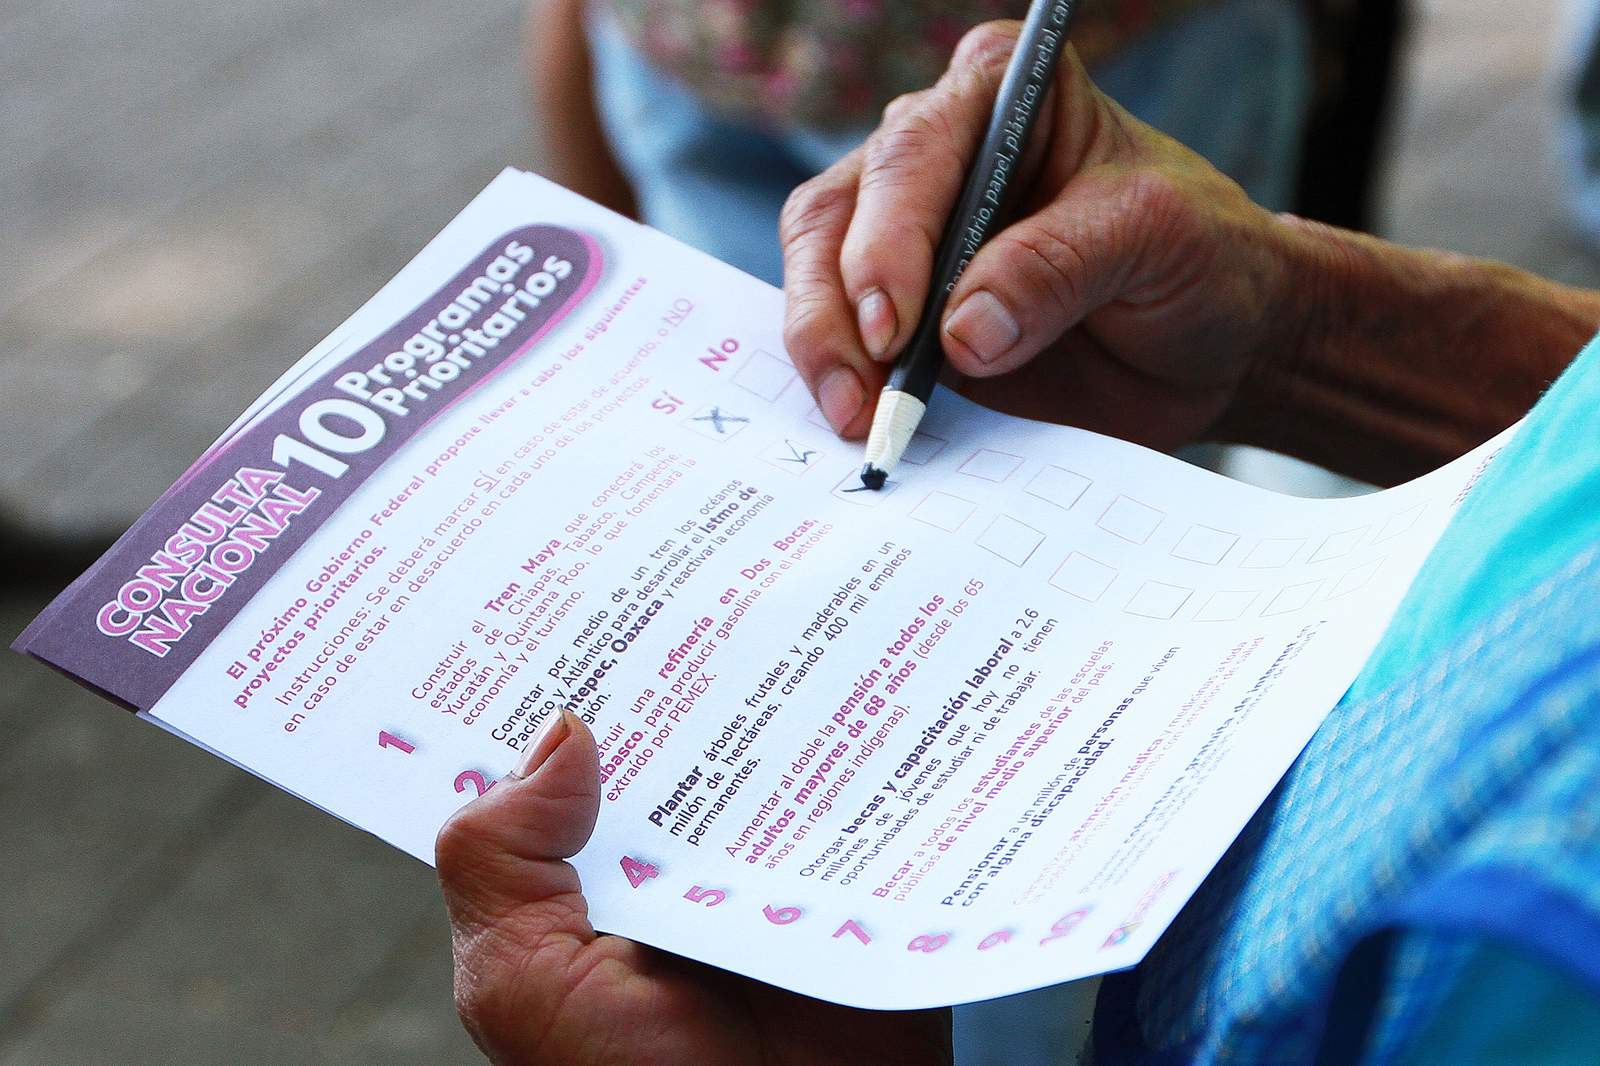 para vidrio, papel, plástico, metal, car
CONSULTA
NACIONAL
10
Programas
Prioritarios
El próximo Gobierno Federal propone llevar a cabo los siguientes
proyectos prioritarios.
Instrucciones: Se deberá marcar SÍ en caso de estar de acuerdo, o NO
en caso de estar en desacuerdo en cada uno de los proyectos.
Sí No
1 Construir el Tren Maya que conectará los
estados de Chiapas, Tabasco, Campeche,
Yucatán y Quintana Roo, lo que fomentará la
economía y el turismo.
2 Conectar por medio de un tren los océanos
Pacífico y Atlántico para desarrollar el Istmo de
ntepec, Oaxaca y reactivar la economía
gión.
struir una refinería en Dos Bocas,
abasco, para producir gasolina con el petróleo
extraído por PEMEX.
4 Plantar árboles frutales y maderables en un
millón de hectáreas, creando 400 mil empleos
permanentes.
5 Aumentar al doble la pensión a todos los
adultos mayores de 68 años (desde los 65
años en regiones indígenas).
6 Otorgar becas y capacitación laboral a 2.6
millones de jóvenes que hoy no tienen
oportunidades de estudiar ni de trabajar.
7 Becar a todos los estudiantes de las escuelas
públicas de nivel medio superior del país.
8 Pensionar a un millón de personas que viven
con alguna discapacidad.
9 Garantizar atención médica y medicinas a toda
la población que no cuenta con servicios de salud
10 cobertura gratuita de internet en